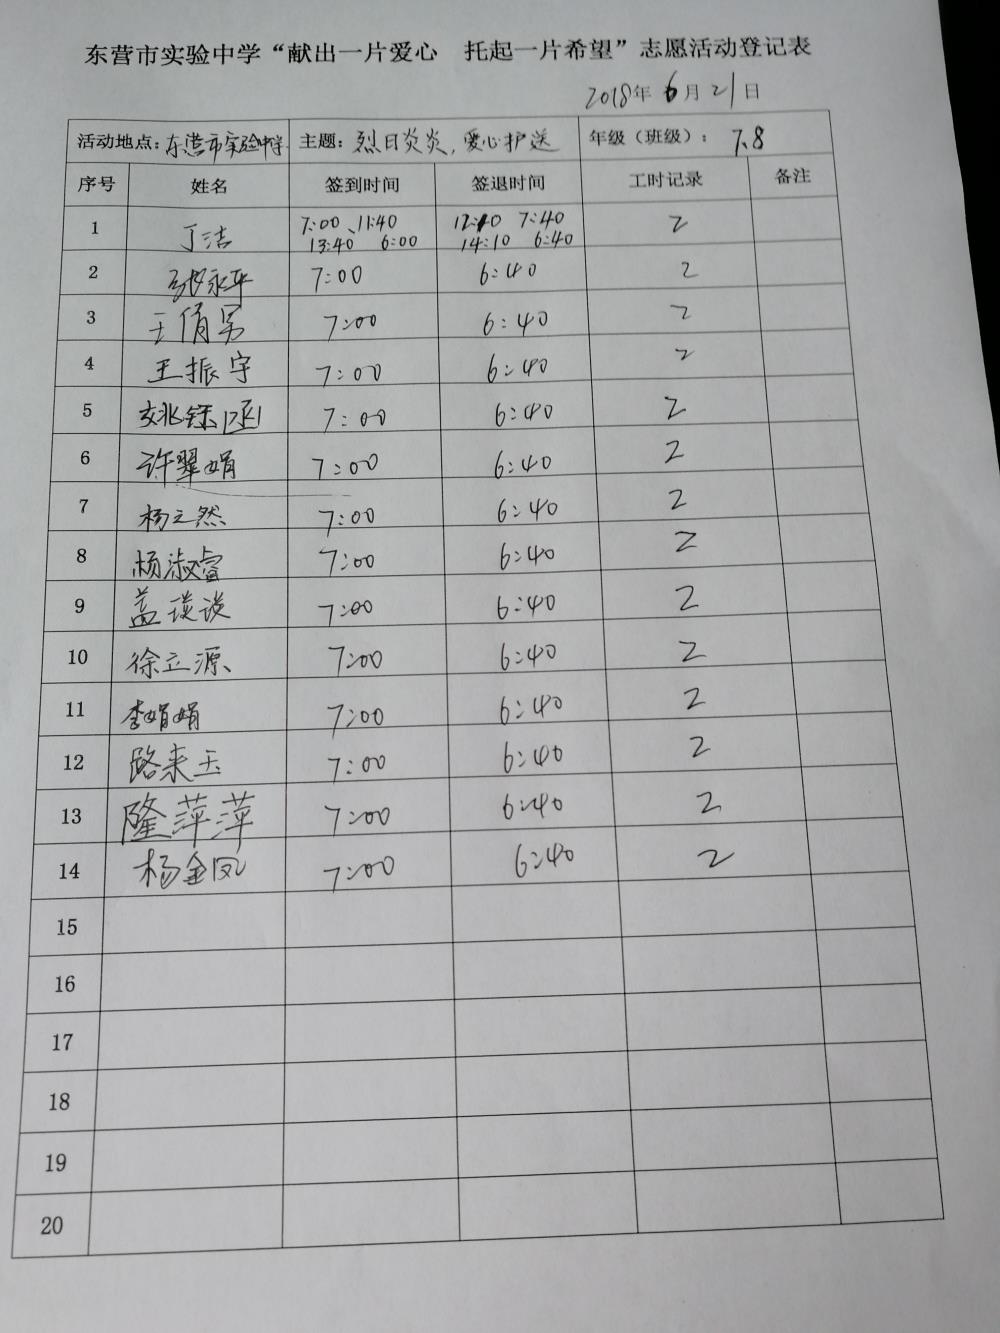 东营市实验中学“献出一片爱心 托起一片希望”志愿活动登记表
2018年 6月 21日
活动地点：东营市实验中学 主题：烈日炎炎，爱心护送 年级（班级）：7.8
序号 姓名 签到时间 签退时间 工时记录 备注
1 丁洁 7:00、11:40 12:10 7:40 2
13:40 6:00 14:10 6:40
2 张永平 7:00 6:40 2
3 王倩男 7:00 6:40 2
4 王振宇 7:00 6:40 2
5 7:00 6:40 2
6 许翠娟 7:00 6:40 2
7 杨之然 7:00 6:40 2
8 杨淑睿 7:00 6:40 2
9 盖谈谈 7:00 6:40 2
10 徐立源 7:00 6:40 2
11 李娟娟 7:00 6:40 2
12 路来玉 7:00 6:40 2
13 隆萍萍 7:00 6:40 2
14 杨金凤 7:00 6:40 2
15
16
17
18
19
20